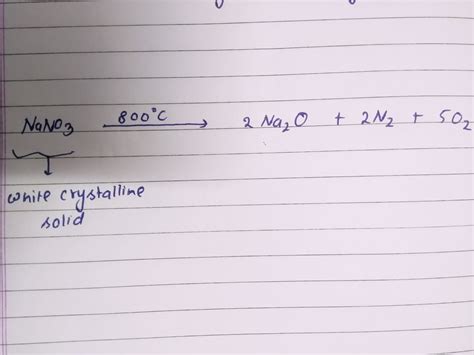 NaNO3 800°C 2 Na2O + 2N2 + 5O2
white crystalline
solid